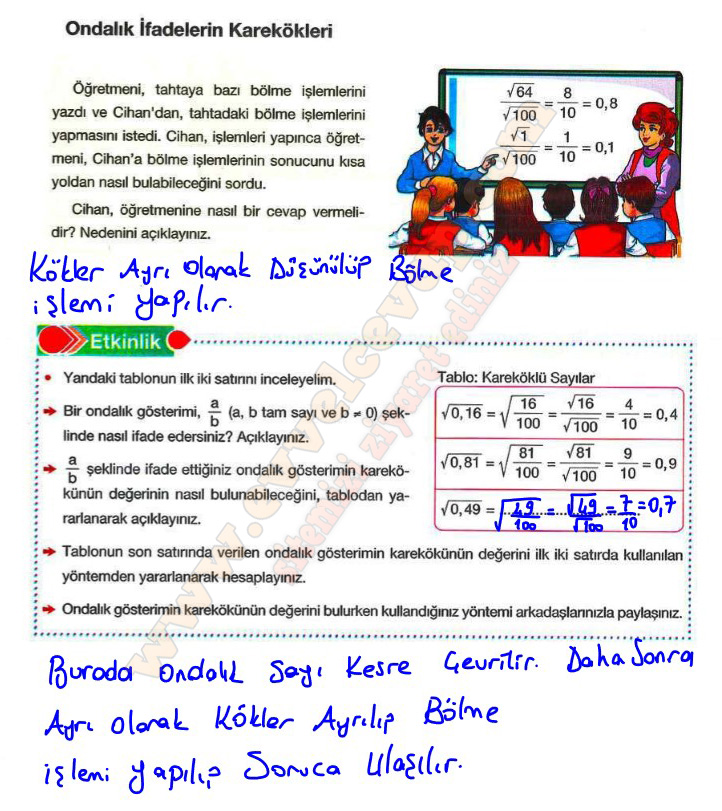 Ondalık İfadelerin Karekökleri
Öğretmeni, tahtaya bazı bölme işlemlerini
yazdı ve Cihan'dan, tahtadaki bölme işlemlerini
yapmasını istedi. Cihan, işlemleri yapınca öğret-
meni, Cihan'a bölme işlemlerinin sonucunu kısa
yoldan nasıl bulabileceğini sordu.
Cihan, öğretmenine nasıl bir cevap vermeli-
dir? Nedenini açıklayınız.
√64/√100 = 8/10 = 0,8
√1/√100 = 1/10 = 0,1
Kökler Ayrı Olarak Düşünülüp Bölme
işlemi yapılır.
Etkinlik
• Yandaki tablonun ilk iki satırını inceleyelim.
Bir ondalık gösterimi, a/b (a, b tam sayı ve b ≠ 0) şek-
linde nasıl ifade edersiniz? Açıklayınız.
a/b şeklinde ifade ettiğiniz ondalık gösterimin karekö-
künün değerinin nasıl bulunabileceğini, tablodan ya-
rarlanarak açıklayınız.
Tablo: Kareköklü Sayılar
√0,16 = √(16/100) = √16/√100 = 4/10 = 0,4
√0,81 = √(81/100) = √81/√100 = 9/10 = 0,9
√0,49 = √(49/100) = √49/√100 = 7/10 = 0,7
Tablonun son satırında verilen ondalık gösterimin karekökünün değerini ilk iki satırda kullanılan
yöntemden yararlanarak hesaplayınız.
Ondalık gösterimin karekökünün değerini bulurken kullandığınız yöntemi arkadaşlarınızla paylaşınız.
Burada ondalık sayı kesre çevrilir. Daha Sonra
Ayrı olarak Kökler Ayrılıp Bölme
işlemi yapılıp Sonuca Ulaşılır.
www.evvelcevap.com
sitemizi ziyaret ediniz